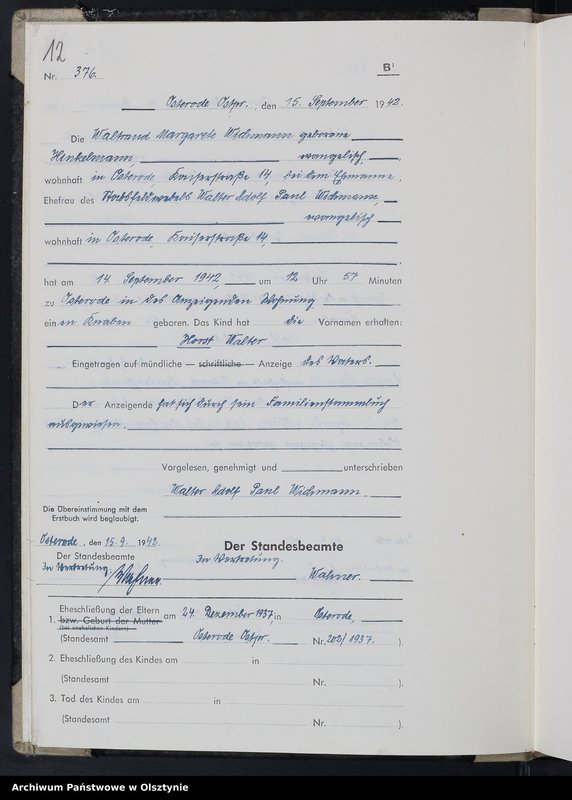 12
Nr. 376.
B¹
Osterode Ostpr., den 15. September 1942.
Die Waltraud Margarete Wichmann geborene
Hinkelmann, evangelisch,
wohnhaft in Osterode Kaiserstraße 14, bei dem Ehemanne,
Ehefrau des Stabsfeldwebels Walter Adolf Paul Wichmann,
evangelisch
wohnhaft in Osterode, Kaiserstraße 14,
hat am 14. September 1942, um 12 Uhr 57 Minuten
zu Osterode in des Anzeigenden Wohnung
einen Knaben geboren. Das Kind hat die Vornamen erhalten:
Horst Walter
Eingetragen auf mündliche — schriftliche — Anzeige des Vaters.
Der Anzeigende hat sich durch sein Familienstammbuch
ausgewiesen.
Vorgelesen, genehmigt und unterschrieben
Walter Adolf Paul Wichmann
Die Übereinstimmung mit dem
Erstbuch wird beglaubigt.
Osterode, den 15.9. 1942.
Der Standesbeamte
In Vertretung.
Der Standesbeamte
In Vertretung.
Eheschließung der Eltern am 24. Dezember 1937 in Osterode,
1. bzw. Geburt der Mutter
(bei unehelichen Kindern)
(Standesamt Osterode Ostpr. Nr. 202/1937. ).
2. Eheschließung des Kindes am in
(Standesamt Nr. ).
3. Tod des Kindes am in
(Standesamt Nr. ).
Archiwum Państwowe w Olsztynie